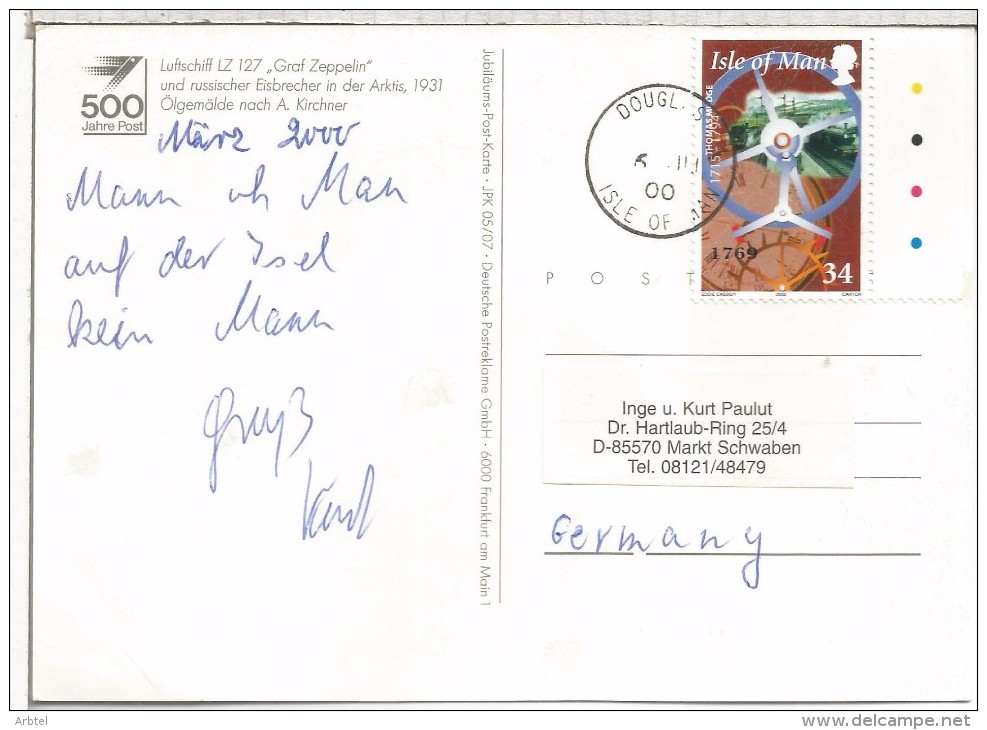 500
Jahre Post
Luftschiff LZ 127 „Graf Zeppelin"
und russischer Eisbrecher in der Arktis, 1931
Ölgemälde nach A. Kirchner
März 2000
Mann oh Man
auf der Isel
kein Mann
Gruß
Kurt
Jubiläums-Post-Karte · JPK 05/07 · Deutsche Postreklame GmbH · 6000 Frankfurt am Main 1
DOUGL
00
ISLE OF MAN
Isle of Man
THOMAS MUDGE
1715 - 1794
1769
34
EDDIE CASSIDY 2000 CARTOR
POST
Inge u. Kurt Paulut
Dr. Hartlaub-Ring 25/4
D-85570 Markt Schwaben
Tel. 08121/48479
Germany
Arbtel
www.delcampe.net